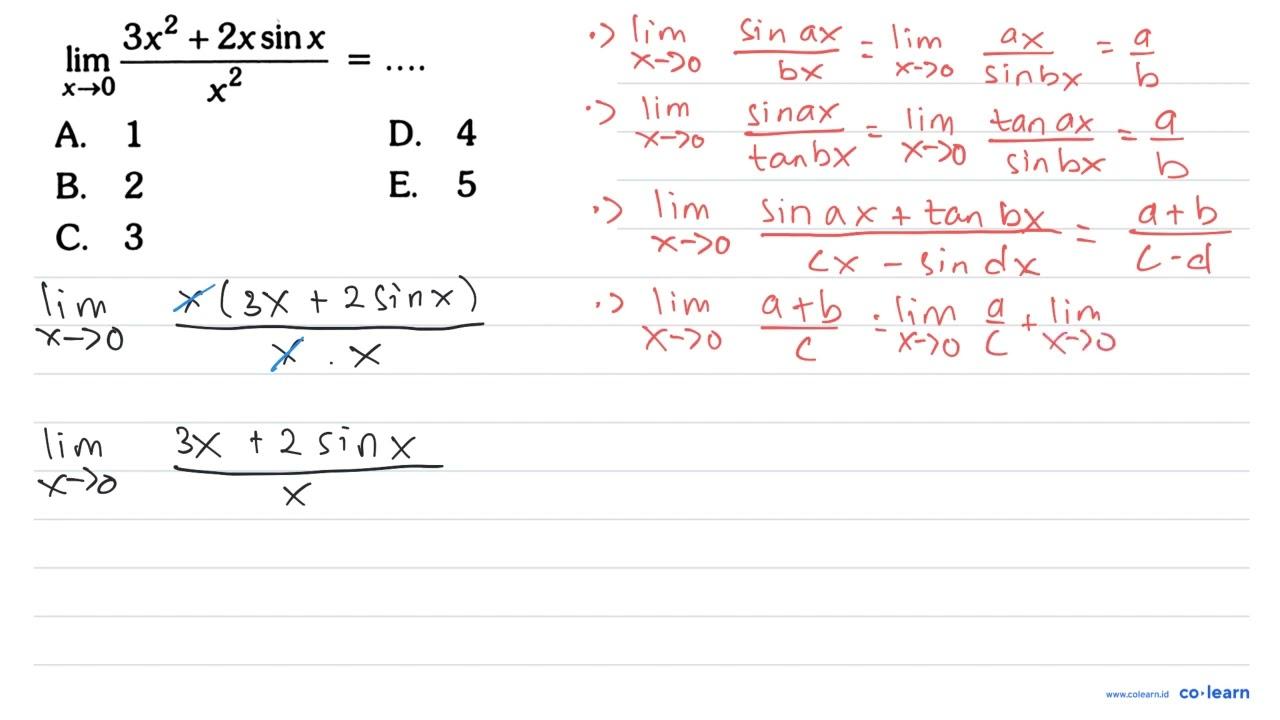 lim x→0 (3x² + 2x sin x)/x² = ....
A. 1
D. 4
B. 2
E. 5
C. 3
lim x→0 x(3x + 2 sin x)/(x . x)
lim x→0 (3x + 2 sin x)/x
·) lim x→0 sin ax/bx = lim x→0 ax/sin bx = a/b
·) lim x→0 sin ax/tan bx = lim x→0 tan ax/sin bx = a/b
·) lim x→0 (sin ax + tan bx)/(cx - sin dx) = (a+b)/(c-d)
·) lim x→0 (a+b)/c = lim x→0 a/c + lim x→0
www.colearn.id co·learn